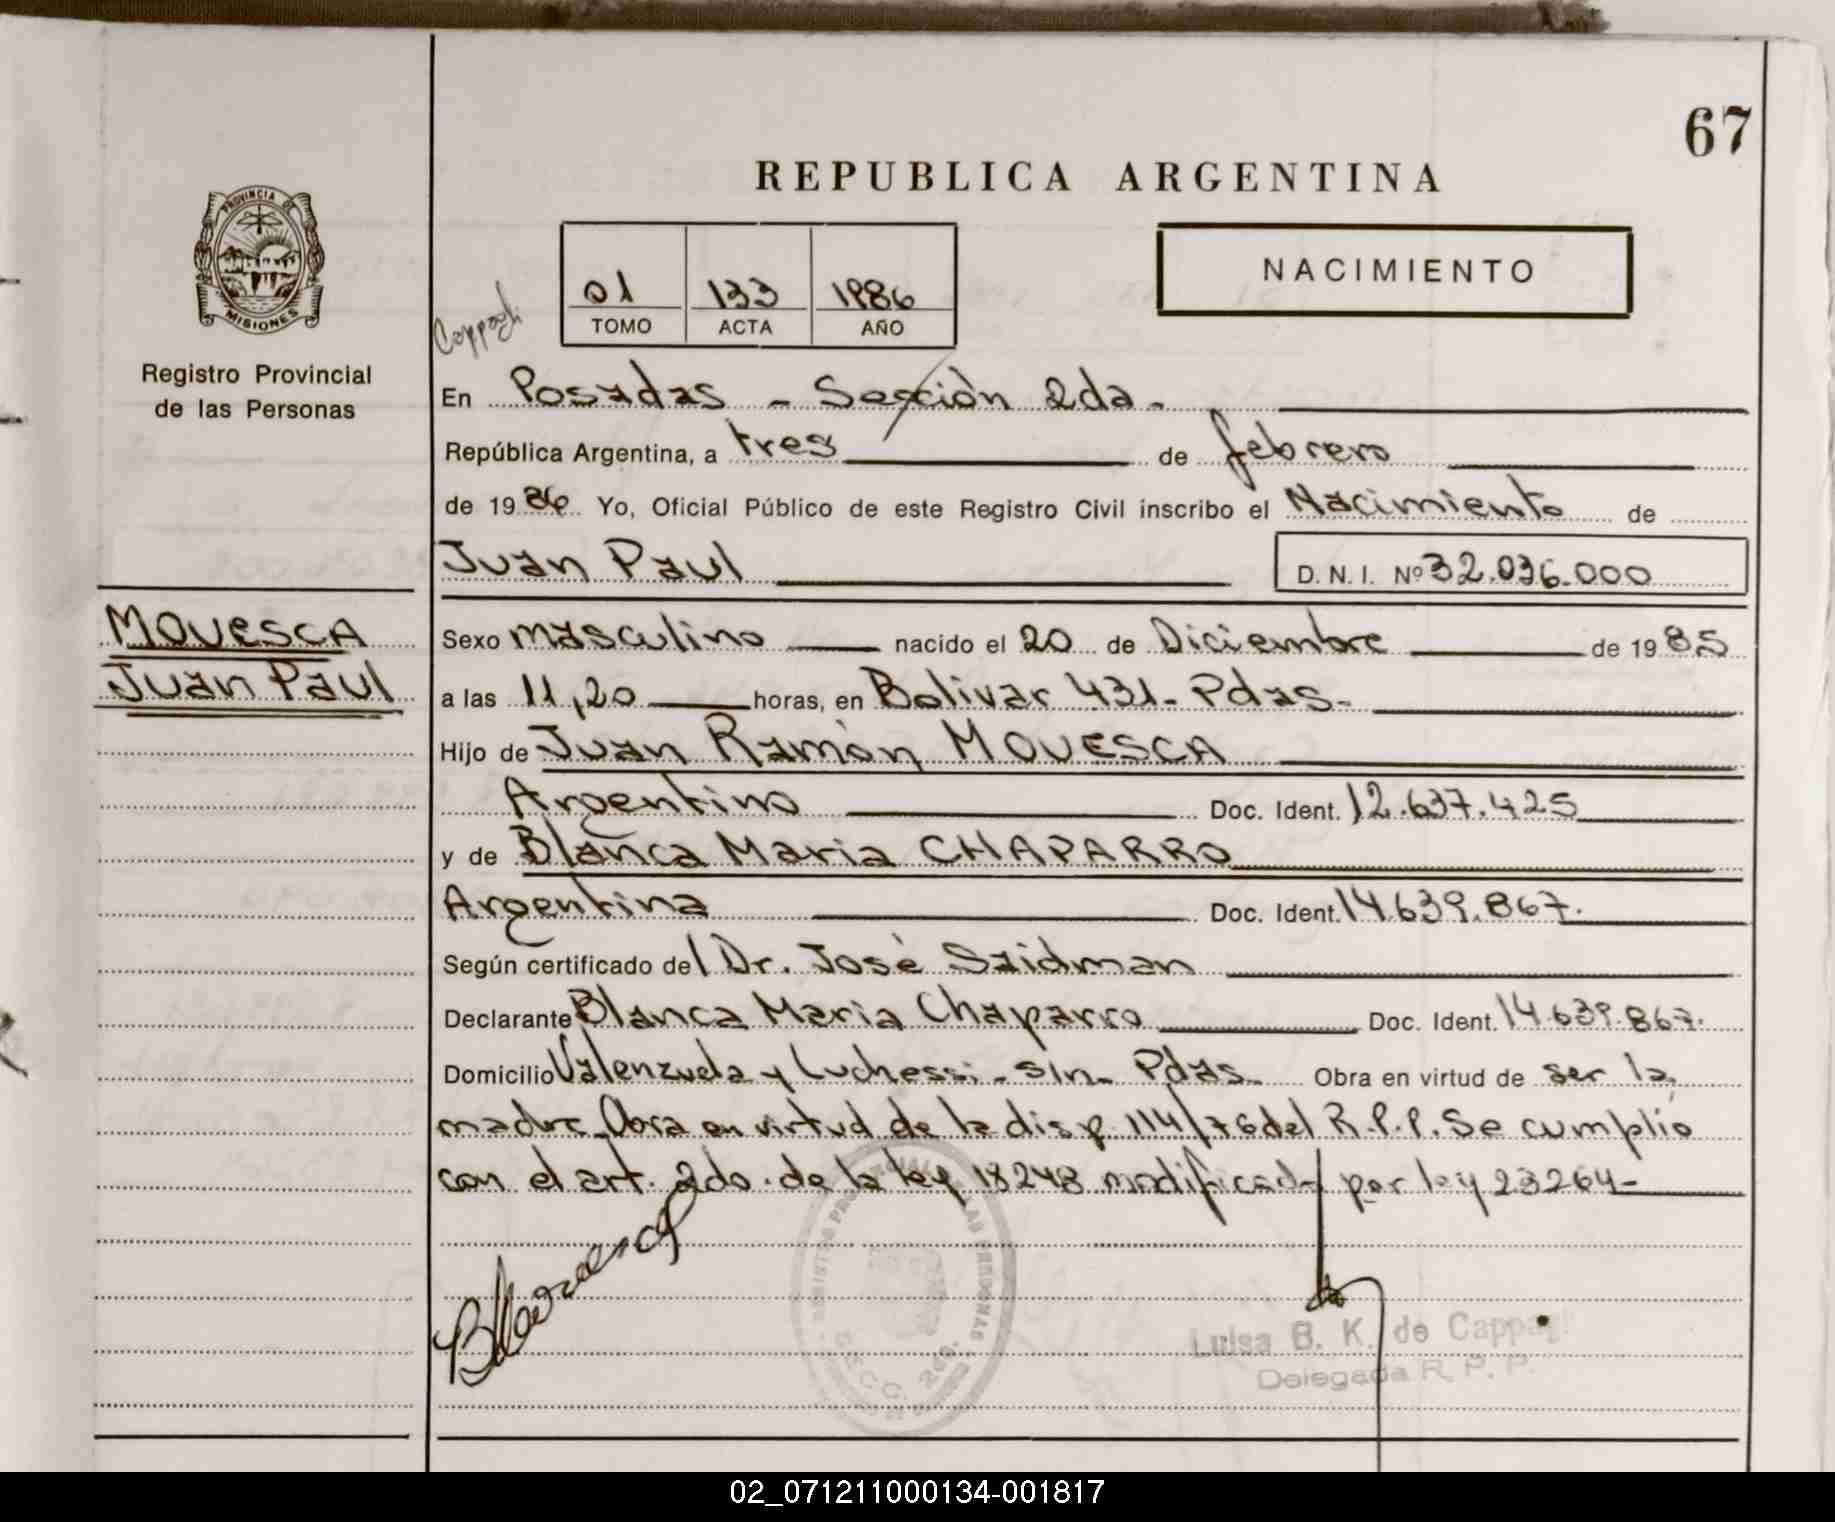 67
REPUBLICA ARGENTINA
PROVINCIA DE
MISIONES
Registro Provincial
de las Personas
01 133 1986
TOMO ACTA AÑO
NACIMIENTO
Cappagli
En Posadas - Sección 2da -
República Argentina, a tres de febrero
de 1986 Yo, Oficial Público de este Registro Civil inscribo el Nacimiento de
Juan Paul D. N. I. Nº 32.036.000
MOVESCA
Juan Paul
Sexo masculino nacido el 20 de Diciembre de 1985
a las 11,20 horas, en Bolivar 431- Pdas-
Hijo de Juan Ramón MOVESCA
Argentino Doc. Ident. 12.637.425
y de Blanca Maria CHAPARRO
Argentina Doc. Ident. 14.639.867.
Según certificado del Dr. José Szidman
Declarante Blanca Maria Chaparro Doc. Ident. 14.639.867.
Domicilio Valenzuela y Luchessi - s/n - Pdas. Obra en virtud de ser la
madre Obra en virtud de la disp. 114/76 del R.P.P. Se cumplió
con el art. 2do. de la ley 18248 modificada por ley 23264-
SECC. 2da.
Luisa B. K. de Cappagli
Delegada R. P. P.
02_071211000134-001817